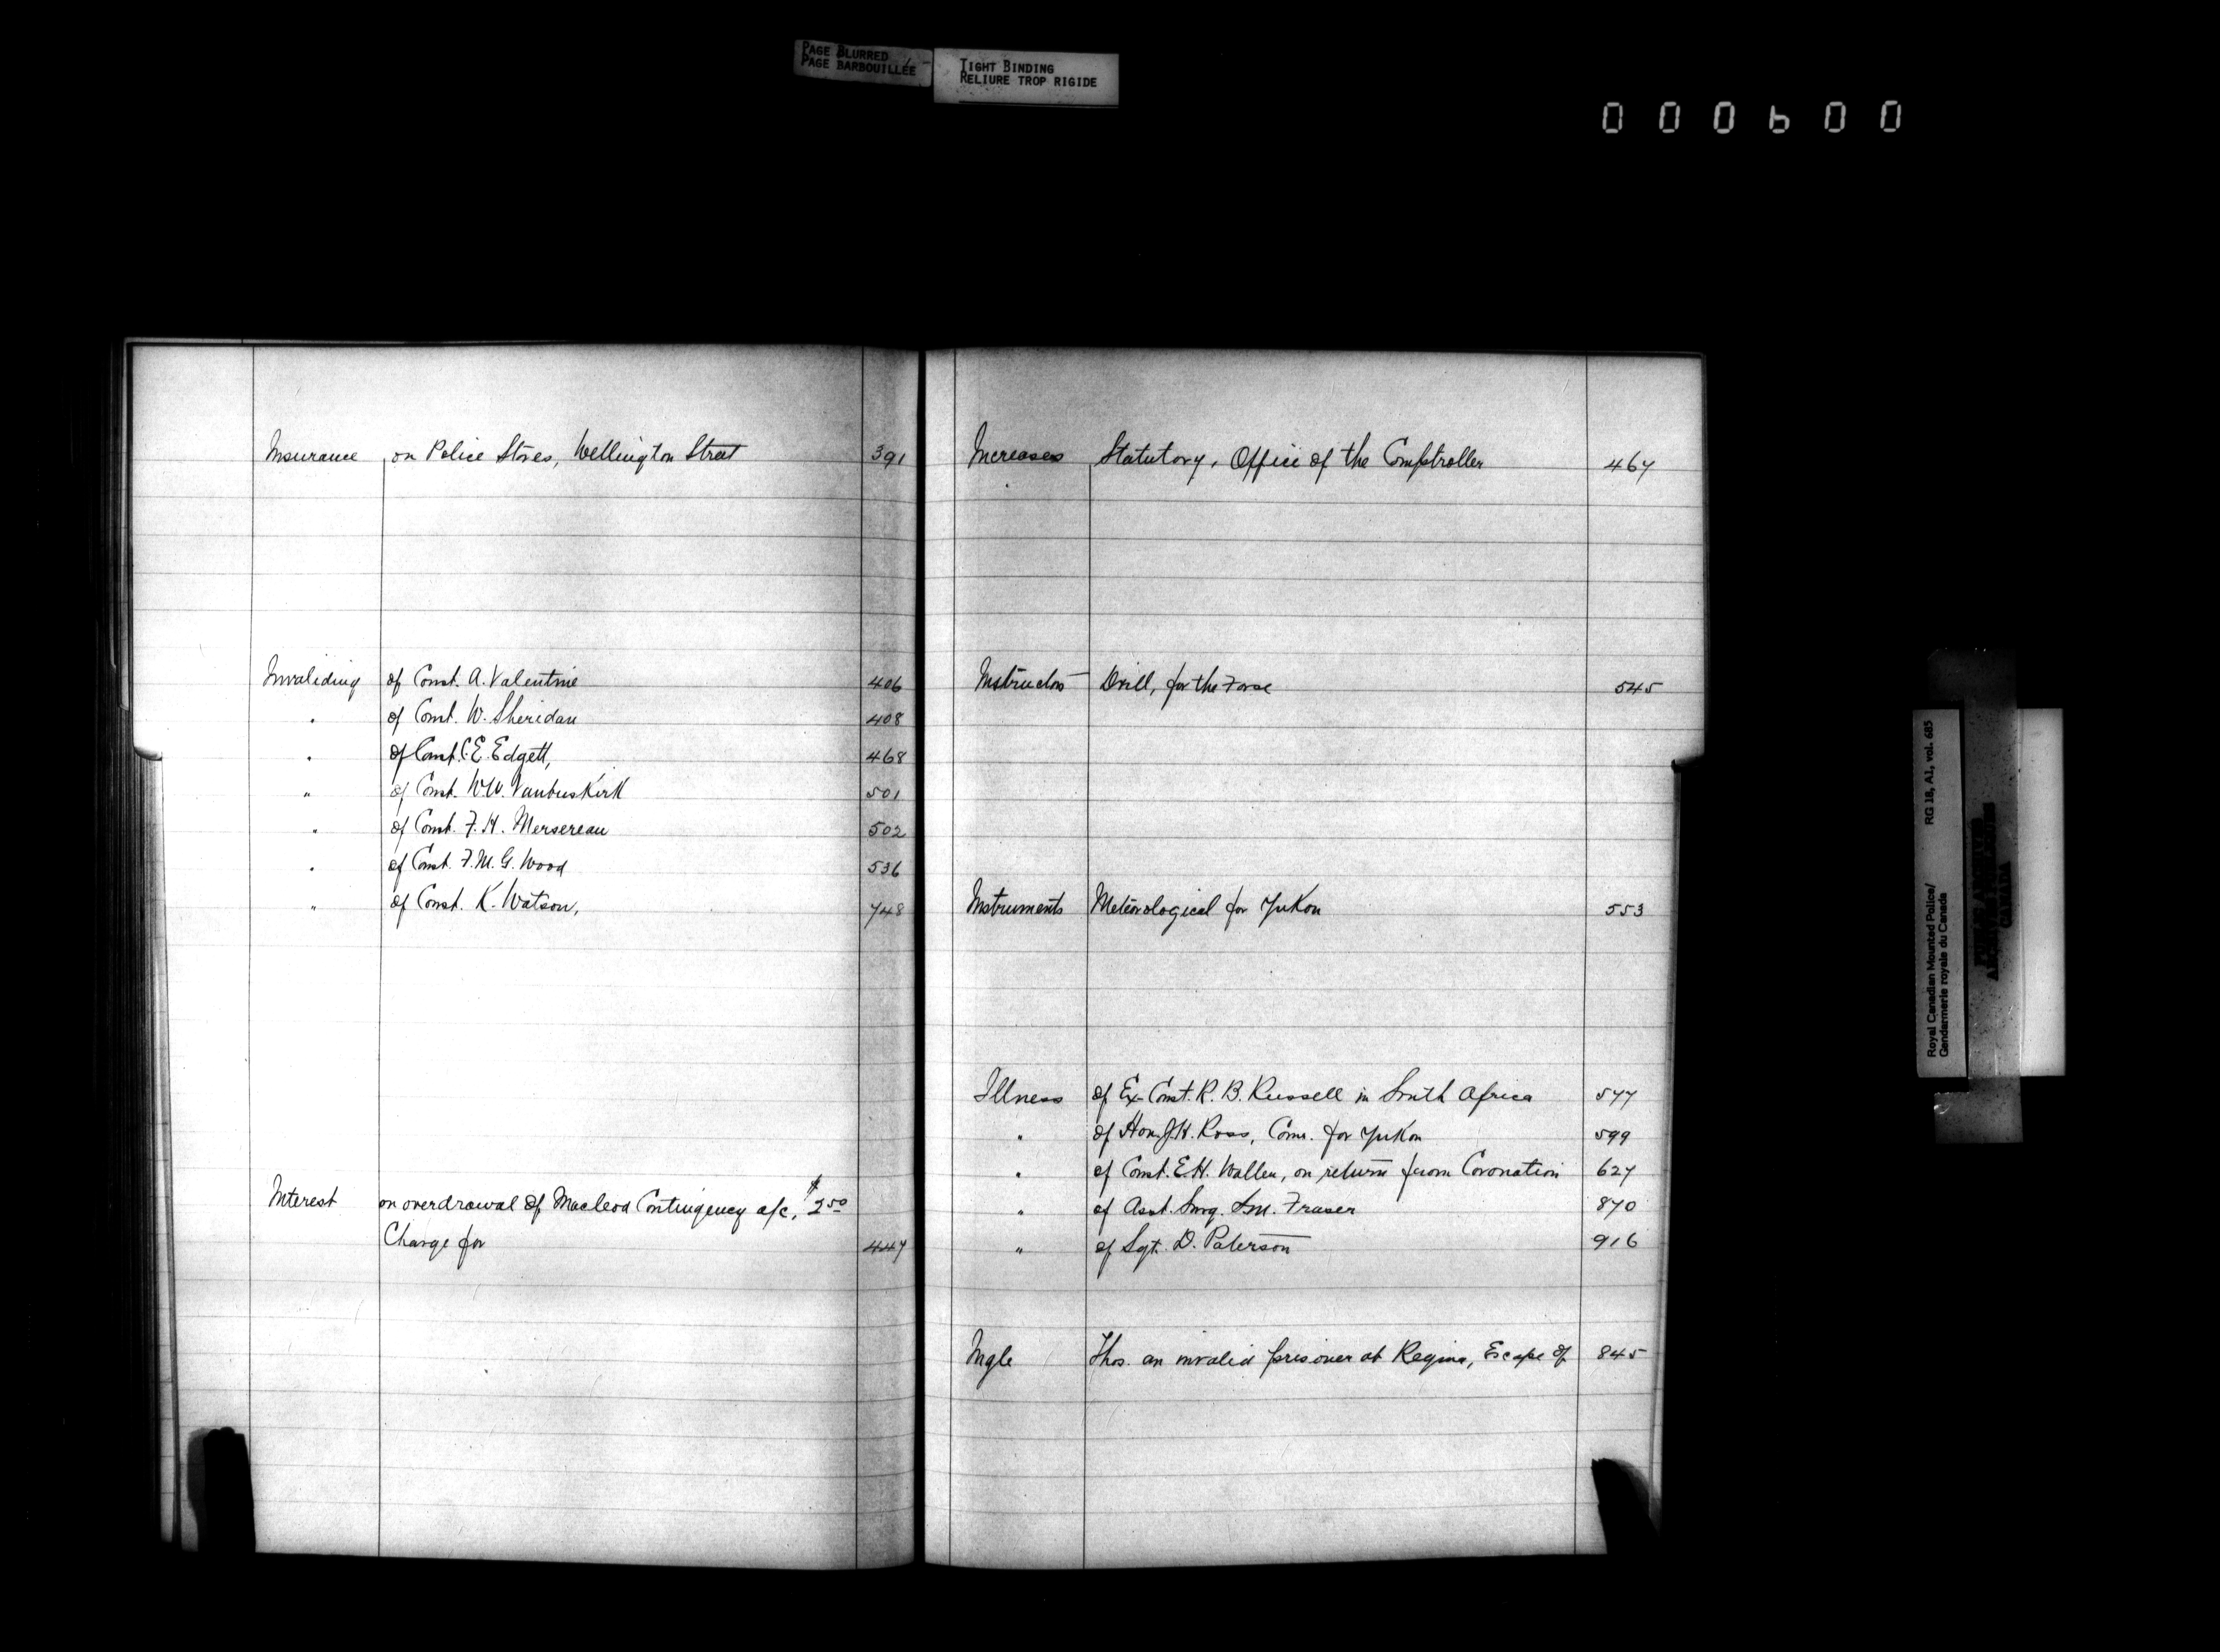 PAGE BLURRED
PAGE BARBOUILLÉE
TIGHT BINDING
RELIURE TROP RIGIDE
000600
Insurance on Police Stores, Wellington Street 391
Invaliding of Const. A. Valentine 406
" of Const. W. Sheridan 408
" of Const. C. E. Edgett, 468
" of Const. W.W. Vanbuskirk 501
" of Const. F. H. Mersereau 502
" of Const. F. M. G. Wood 536
" of Const. K. Watson, 748
Interest on overdrawal of Macleod Contingency a/c, $2.50
Charge for 447
Increases Statutory, Office of the Comptroller 467
Instructors Drill, for the Force 545
Instruments Meteorological for Yukon 553
Illness of Ex-Const. R. B. Russell in South Africa 577
" of Hon. J. H. Ross, Comr. for Yukon 599
" of Const. E. H. Waller, on return from Coronation 627
" of Asst. Surg. Fraser 870
" of Sgt. D. Paterson 916
Ingle Thos. an invalid prisoner at Regina, Escape of 845
Royal Canadian Mounted Police/ RG 18, A1, vol. 685
Gendarmerie royale du Canada
PUBLIC ARCHIVES
ARCHIVES PUBLIQUES
CANADA